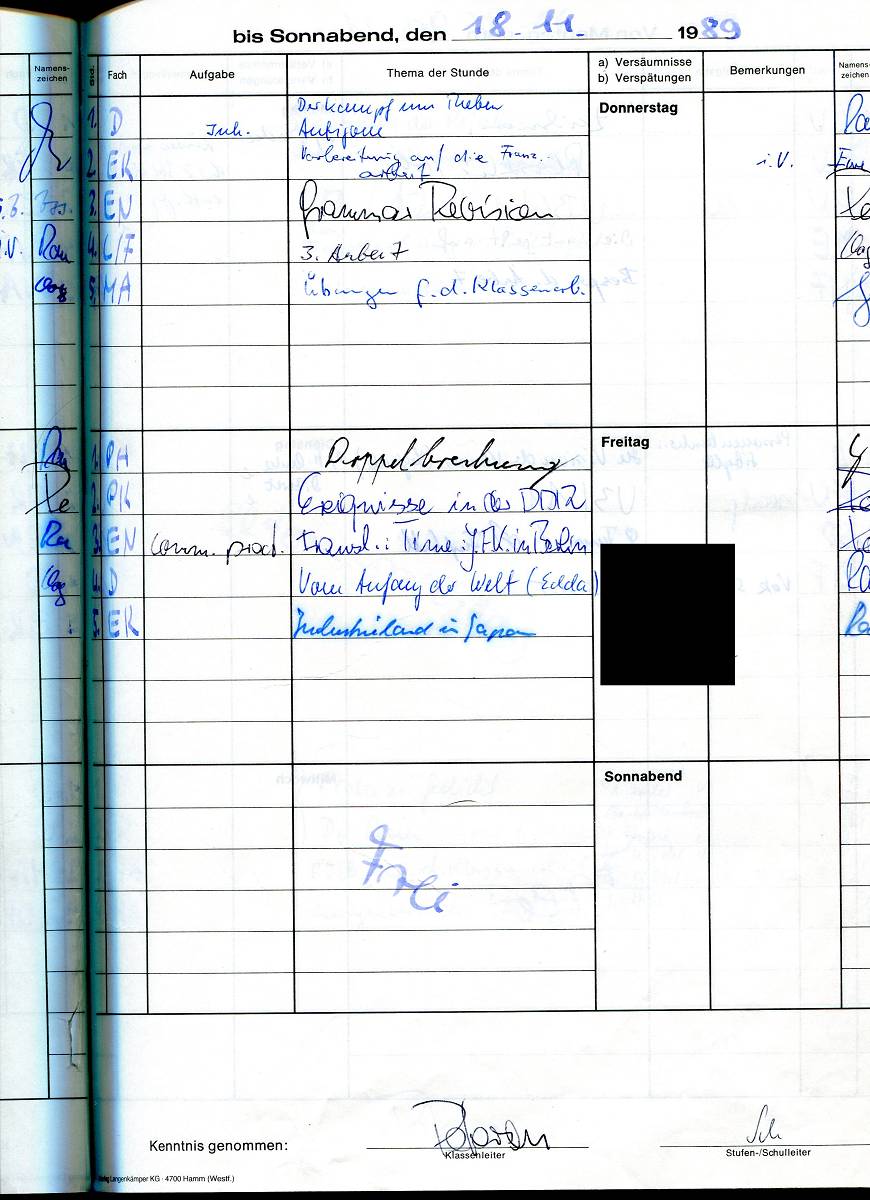 bis Sonnabend, den 18. 11. 1989
Namens-
zeichen
Std.
Fach
Aufgabe
Thema der Stunde
a) Versäumnisse
b) Verspätungen
Bemerkungen
Namens-
zeichen
Donnerstag
1. D Inh. Der Kampf um Theben
Antigone
2. EK Vorbereitung auf die Franz.-
arbeit i.V.
3. EN Grammar Revision
4. L/F 3. Arbeit
5. MA Übungen f. d. Klassenarb.
Freitag
1. PH Doppelbrechung
2. PK Ereignisse in der DDR
3. EN comm. prod. transl.: Time: J.F.K. in Berlin
4. D Vom Anfang der Welt (Edda)
5. EK Industrieland in Japan
Sonnabend
Frei
Kenntnis genommen:
Klassenleiter
Stufen-/Schulleiter
Langenkämper KG · 4700 Hamm (Westf.)